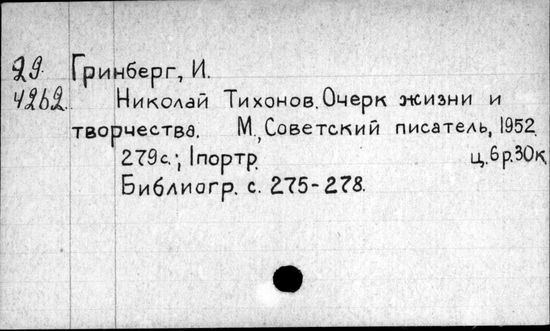 29. Гринберг, И.
4262. Николай Тихонов. Очерк жизни и
творчества. М., Советский писатель, 1952.
279с.; 1портр. ц.6р.30к.
Библиогр. с. 275-278.